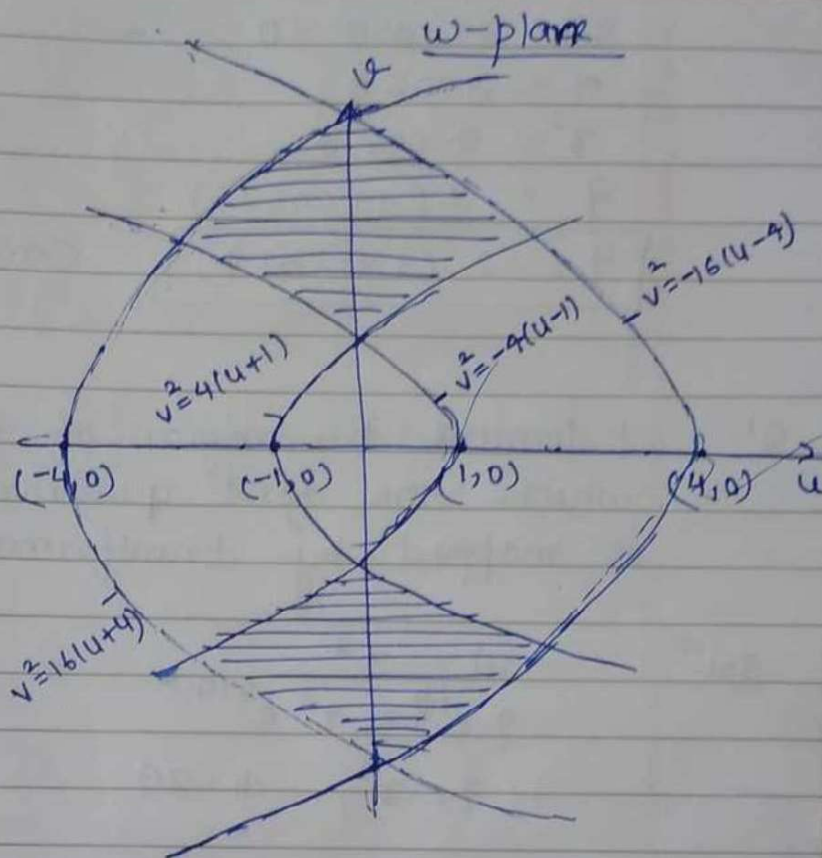 w-plane
v
v²=-16(u-4)
v²=4(u+1)
v²=-4(u-1)
(-4,0)
(-1,0)
(1,0)
(4,0)
u
v²=16(u+4)